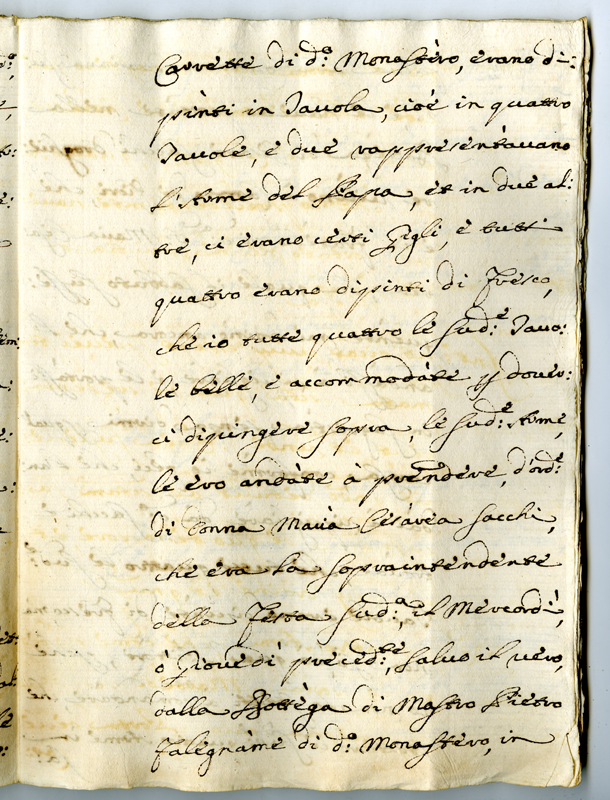 Carrette di d.ª Monastèro, erano di=
pinti in Tavola, cioè in quattro
Tavole, e due rappresentàvano
l'Arme del Papa, et in due al:
tre, ci erano certi Gigli, e tutti
quattro erano dipinti di fresco,
che io tutte quattro le sud:ᵉ Tavo:
le bèlle, e accommodàte p dover:
ci dipingere sopra, le sud:ᵉ Arme,
le ero andàte à prendere, d'ord:ᵉ
di Donna Maria Cesàrea Sacchi,
che era la sopraintendente
della Festa sud:ª, il Mercordì,
ò Giovedì preced:ᵗᵉ, salvo il vero,
dalla Bottèga di Mastro Pietro
Falegnàme di d.ª Monastero, in